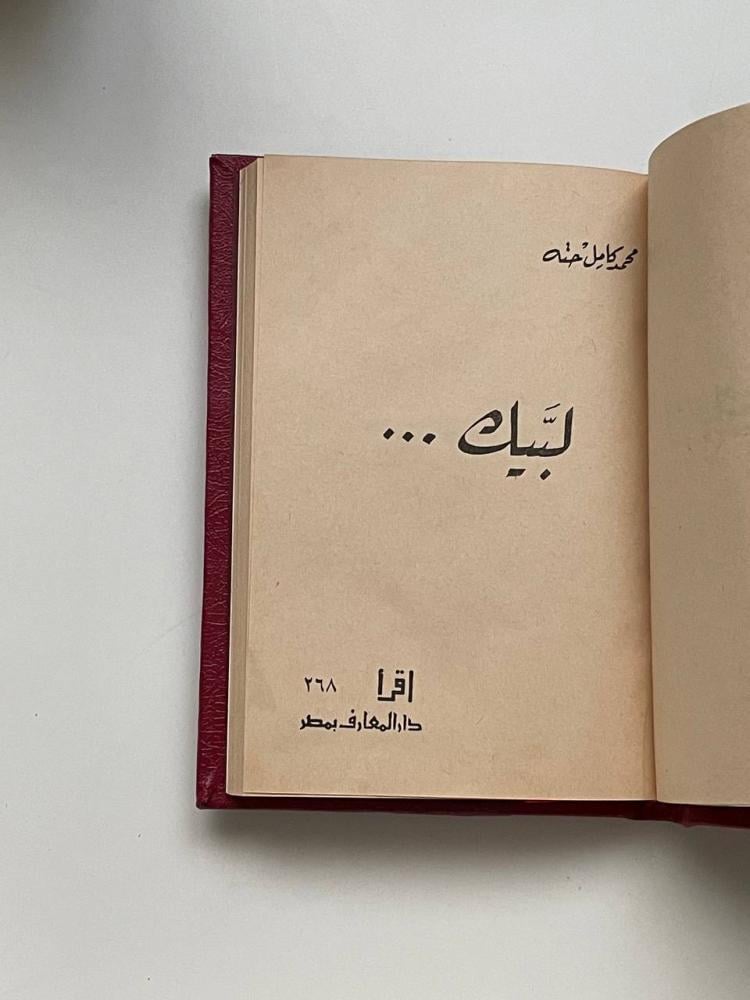 محمد كامل حته
لبَّيك ...
اقرأ ٢٦٨
دار المعارف بمصر